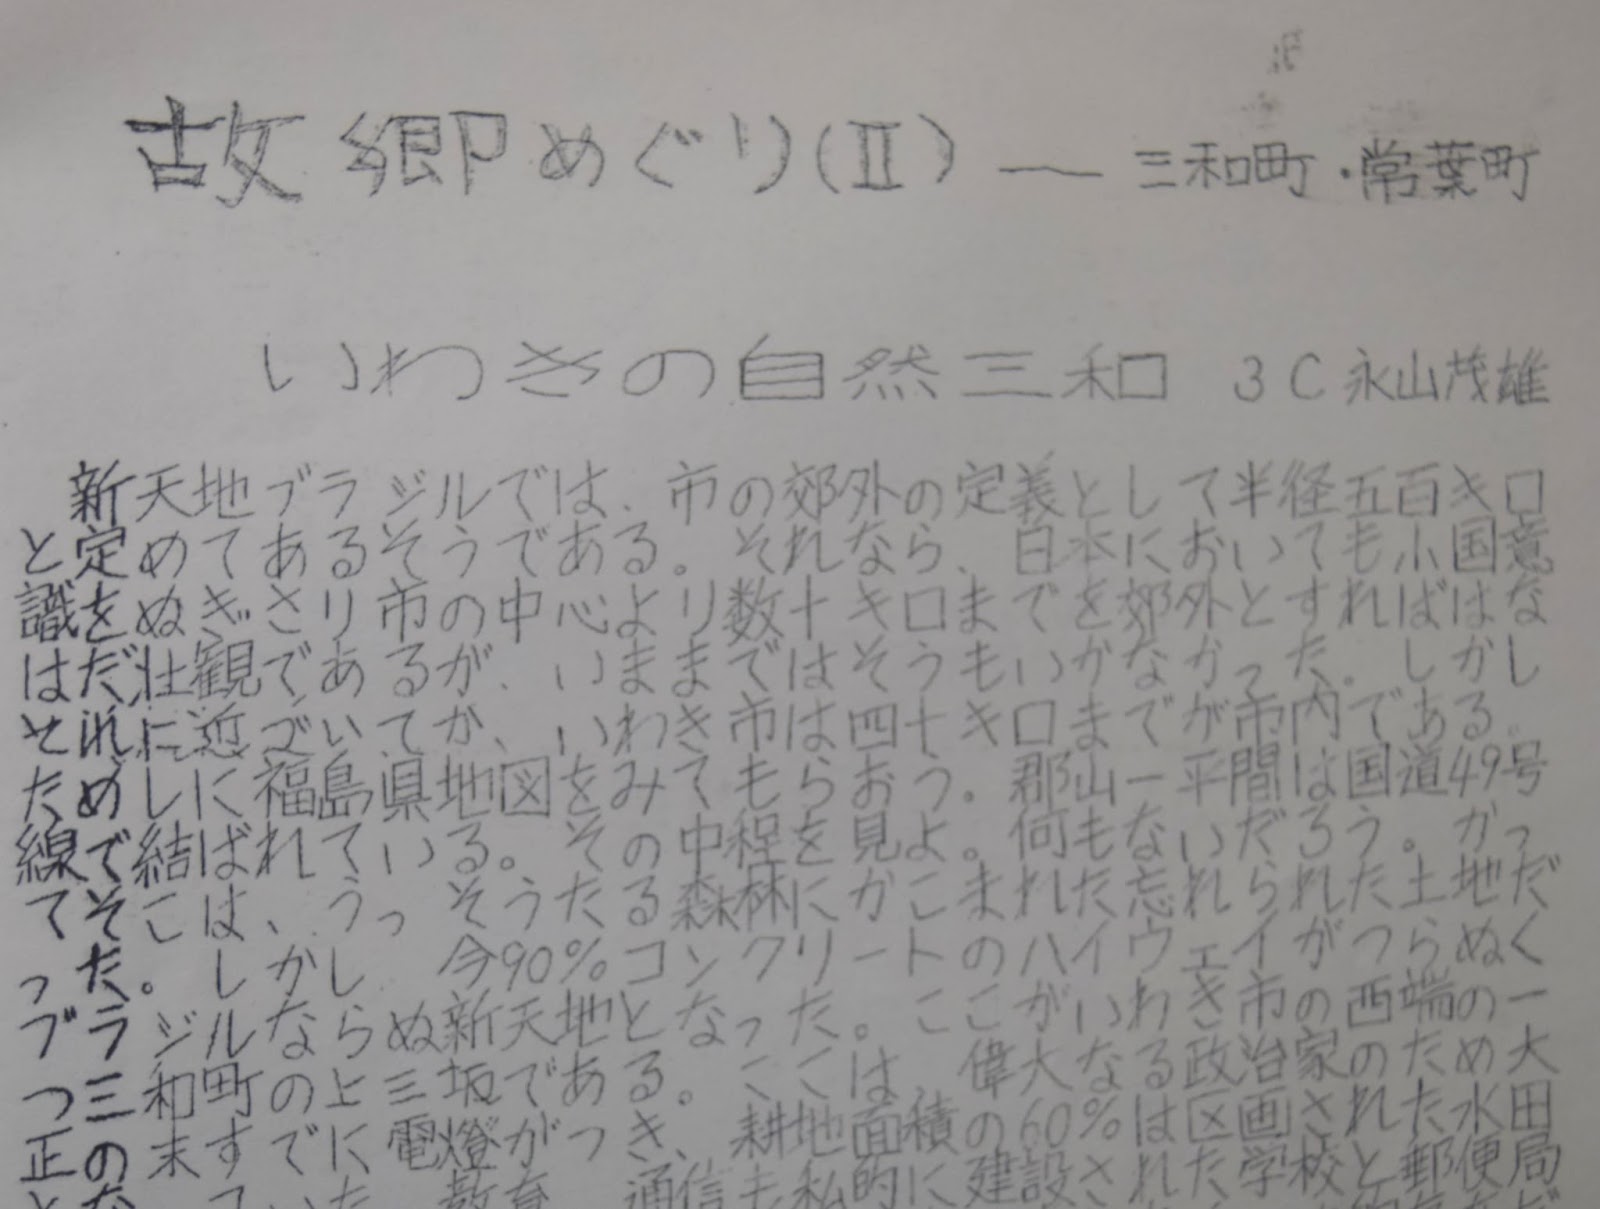 故郷めぐり(Ⅱ)——三和町・常葉町
いわきの自然三和 3C 永山茂雄
新天地ブラジルでは、市の郊外の定義として半径五百キロ
と定めてあるそうである。それなら、日本においても小国意
識をぬぎさり市の中心より数十キロまでを郊外とすればはな
はだ壮観であるが、いままではそうもいかなかった。しかし
それに近づいてか、いわき市は四十キロまでが市内である。
ためしに福島県地図をみてもらおう。郡山一平間は国道49号
線で結ばれている。その中程を見よ。何もないだろう。かっ
てそこは、うっそうたる森林にかこまれた忘れられた土地だ
った。しかし、今90%コンクリートのハイウェイがつらぬく
ブラジルならぬ新天地となった。ここがいわき市の西端の一
つ三和町の上三坂である。ここは、偉大なる政治家のため大
正の末すでに電燈がつき、耕地面積の60%は区画された水田
となっていた 教育 通信も私的に建設された学校と郵便局